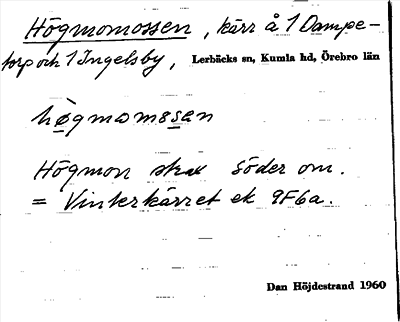 Högmomossen, kärr å 1 Dampe-
torp och 1 Ingelsby, Lerbäcks sn, Kumla hd, Örebro län
högmomåsan
Högmon strax söder om.
= Vinterkärret ek 9F6a.
Dan Höjdestrand 1960